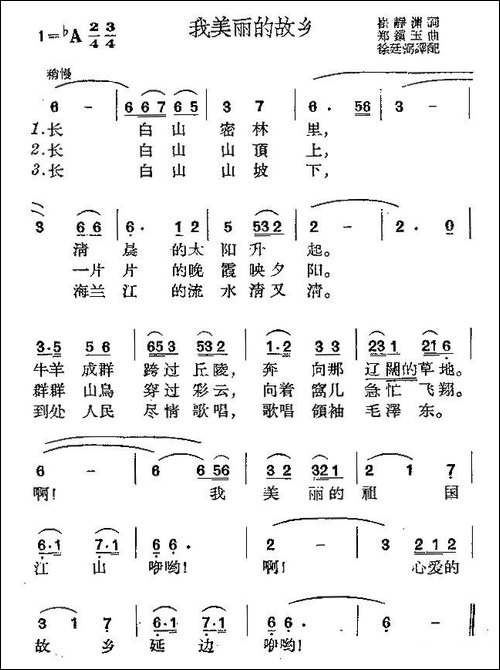 我美丽的故乡
1=♭A 2/4 3/4
崔 靜 渊 詞
郑 鎮 玉 曲
譯配
稍慢
6 - | 6 6 7 6 5 | 3 7 | 6. 56 |
1.长 白 山 密 林 里,
2.长 白 山 山 頂 上,
3.长 白 山 山 坡 下,
3 6 6 | 6. 1 2 | 5 532 | 2 - | 2. 0
清 晨 的太 阳 升 起。
一片 片 的晚 霞 映夕 阳。
海兰 江 的流 水 清又 清。
3·5 5 6 | 653 532 | 1·2 3 3 | 231 216
牛羊 成群 跨过 丘陵, 奔 向那 辽闊的草地。
群群 山鳥 穿过 彩云, 向着 窩儿 急忙 飞翔。
到处 人民 尽情 歌唱, 歌唱 領袖 毛澤 东。
6 - | 6 6 56 | 3 2 321 | 2 1 7
啊! 我 美 丽的 祖 国
6·1 7·1 | 6 6. | 2 - | 3 2 1 2
江 山 咿哟! 啊! 心爱的
3 1 7 | 6·1 7·1 | 6 6. | 6 -
故 乡 延 边 咿哟!